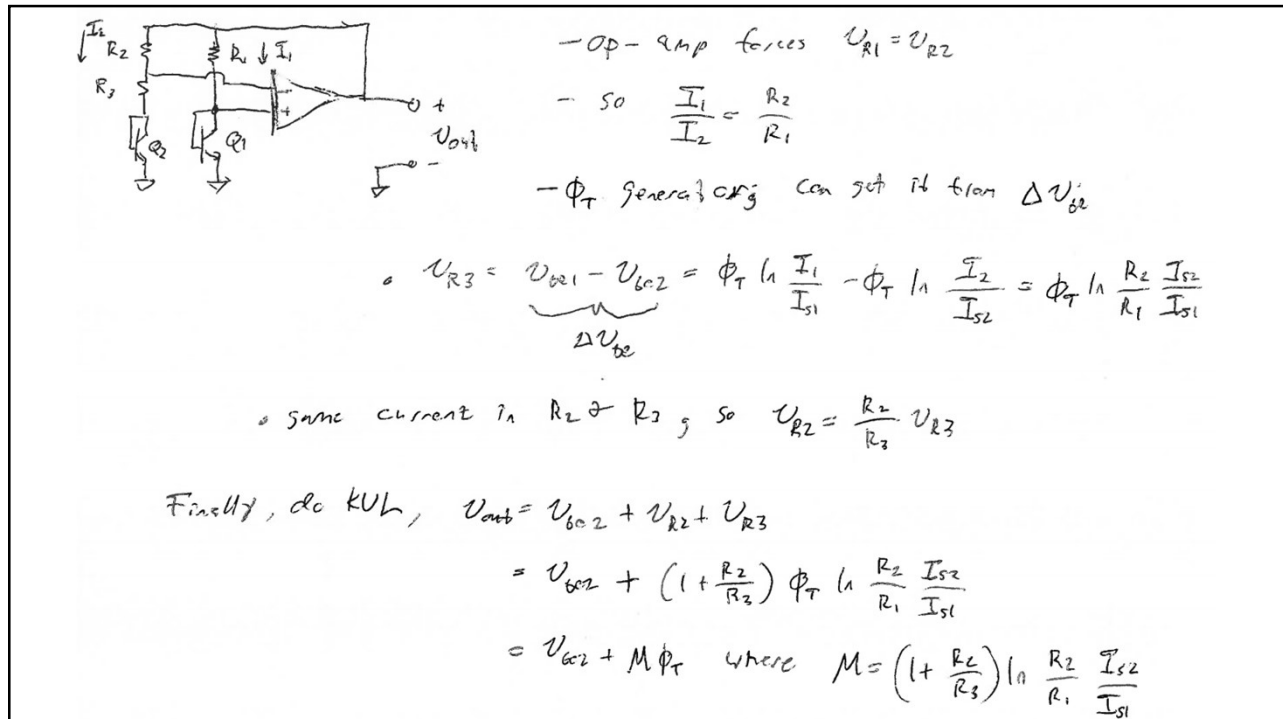 I₂
R₂
R₁ ↓ I₁
R₃
−
+
Q₂
Q₁
+
v_out
−
- op-amp forces v_R1 = v_R2
- so I₁/I₂ = R₂/R₁
- ϕ_T can get it from Δv_be
• v_R3 = v_be1 - v_be2 = ϕ_T ln I₁/I_S1 - ϕ_T ln I₂/I_S2 = ϕ_T ln R₂/R₁ I_S2/I_S1
Δv_be
• same current in R₂ & R₃, so v_R2 = R₂/R₃ v_R3
Finally, do KVL, v_out = v_be2 + v_R2 + v_R3
= v_be2 + (1 + R₂/R₃) ϕ_T ln R₂/R₁ I_S2/I_S1
= v_be2 + M ϕ_T where M = (1 + R₂/R₃) ln R₂/R₁ I_S2/I_S1